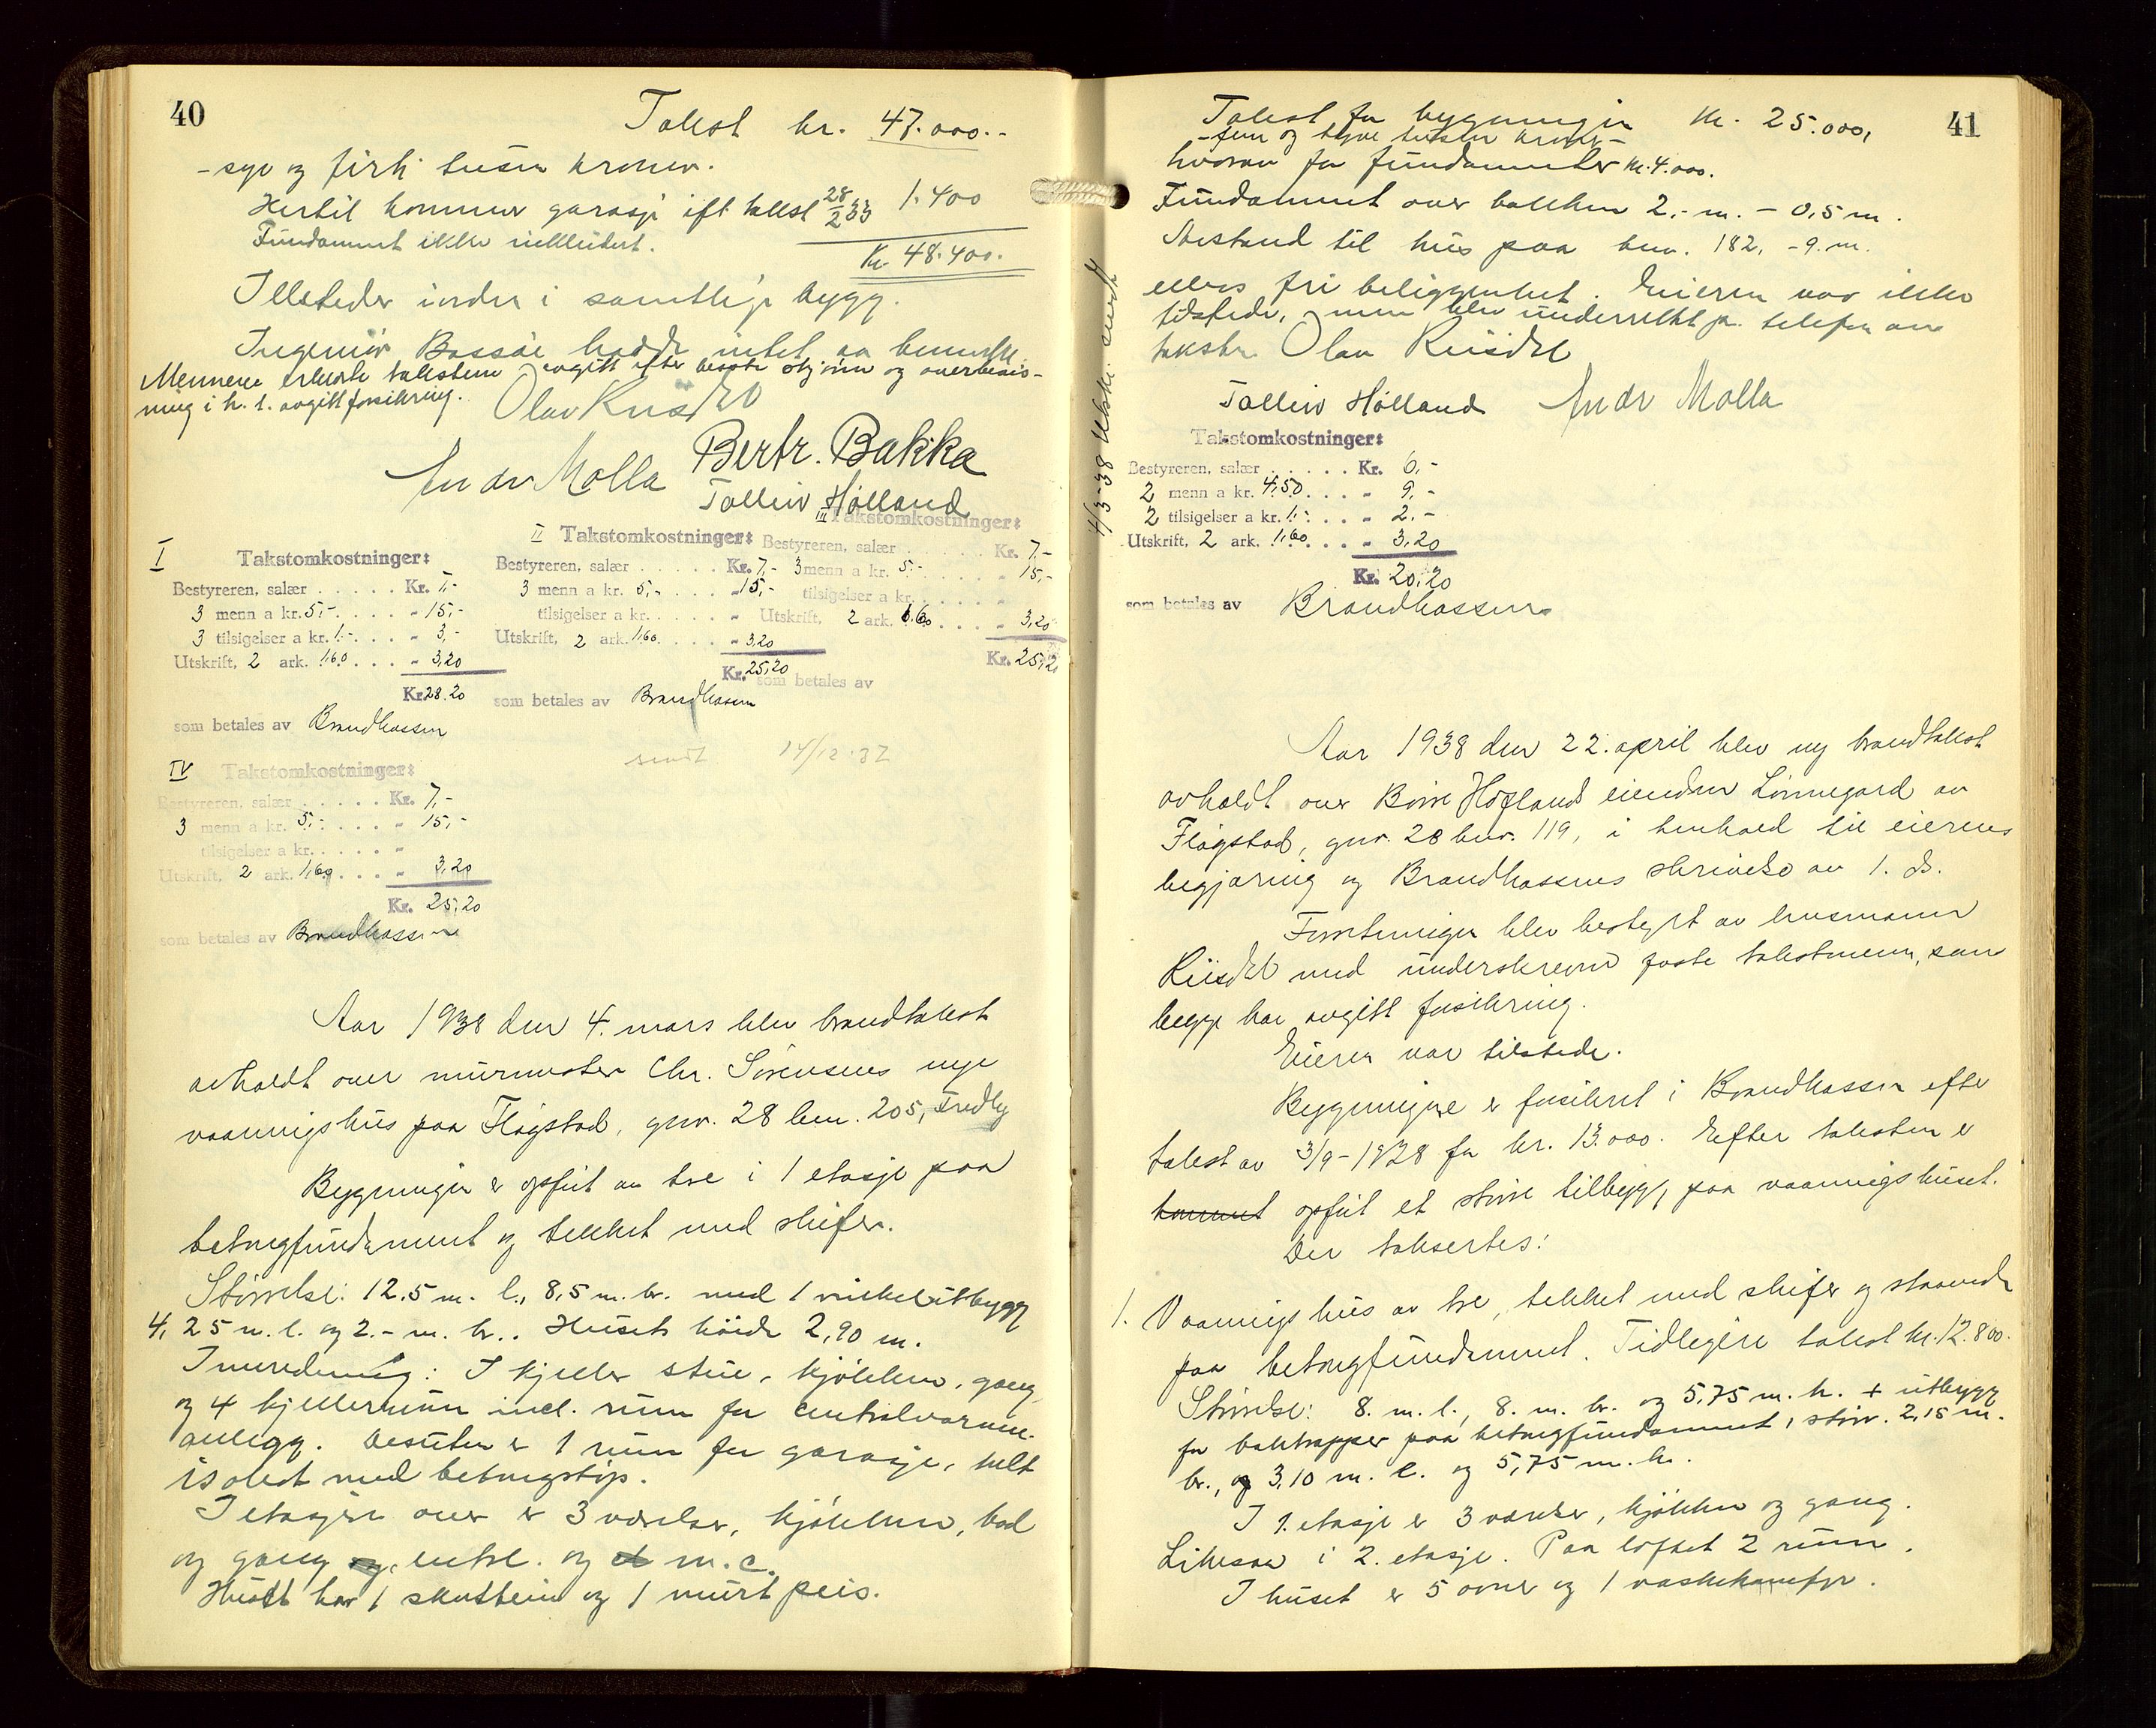 40
Takst kr. 47.000.-
- syv og firti tusen kroner.
Hertil kommer garasje ift. takst 28/2 33 1.400
Fundament ikke inkludert.
Kr. 48.400.-
Ildsteder indre i samtlige bygg.
Ingeniør Bassøe hadde intet aa bemerke.
Mennene erklærte taksten avgitt efter beste skjønn og overbevis-
ning i h. t. avgitt forsikring.
Olav Riisdal
Bertr. Bakka
Andr Molla
Tolleiv Hølland
I Takstomkostninger:
Bestyreren, salær ..... Kr. 7,-
3 menn a kr. 5,- .... „ 15,-
3 tilsigelser a kr. 1.- ... „ 3,-
Utskrift, 2 ark. 1,60 ... „ 3,20
Kr. 28.20
som betales av Brandkassen
II Takstomkostninger:
Bestyreren, salær ..... Kr. 7,-
3 menn a kr. 5,- .... „ 15,-
tilsigelser a kr. .... „
Utskrift, 2 ark. 1,60. .... „ 3,20
Kr. 25,20
som betales av Brandkassen
III Takstomkostninger:
Bestyreren, salær ..... Kr. 7,-
3 menn a kr. 5,- .... „ 15,-
tilsigelser a kr. .... „
Utskrift, 2 ark. 1.60 .... „ 3,20
Kr. 25,2
som betales av
sendt 14/12.37
IV Takstomkostninger:
Bestyreren, salær ..... Kr. 7,-
3 menn a kr. 5,- .... „ 15,-
tilsigelser a kr. .... „
Utskrift, 2 ark. 1,60 ... „ 3,20
Kr. 25,20
som betales av Brandkassen
Aar 1938 den 4. mars blev brandtakst
avholdt over murmester Chr. Sørensens nye
vaaningshus paa Flagstad, gnr. 28 bnr. 205, Fredly
Bygningen er opført av tre i 1 etasje paa
betongfundament og tekket med skifer.
Størrelse: 12.5 m. l., 8,5 m. br. med 1 vinkelutbygg
4,25 m. l. og 2.- m. br.. Husets høide 2,90 m.
Innredning: I kjeller stue, kjøkken, gang
og 4 kjellerrum incl. rum for centralvarme-
anlegg. Desuten er 1 rum for garasje, helt
isolert med betongstøp.
I etasjen over er 3 værelser, kjøkken, bad
og gang og, entre. og et m. c.
Huset har 1 skorstein og 1 murt peis.
41
Takst for bygningen Kr. 25.000,
- fem og tyve tusen kroner -
hvorav for fundamenter kr. 4.000.
Fundament over bakken 2,- m. - 0,5 m.
Avstand til hus paa bnr. 182, - 9. m.
ellers fri beliggenhet. Eieren var ikke
tilstede, men blev underrettet pr. telefon om
taksten Olav Riisdal
Tolleiv Hølland Andr Molla
4/3-38 Utskr. sendt
Takstomkostninger:
Bestyreren, salær ..... Kr. 6,-
2 menn a kr. 4,50 ... „ 9,-
2 tilsigelser a kr. 1.- ... „ 2.-
Utskrift, 2 ark. 1,60 ... „ 3,20
Kr. 20,20
som betales av Brandkassen
Aar 1938 den 22. april blev ny brandtakst
avholdt over Børre Høglands eiendom Lønnegard av
Flagstad, gnr. 28 bnr. 119, i henhold til eierens
begjæring og Brandkassens skrivelse av 1. ds.
Forretningen blev bestyrt av lensmann
Riisdal med underskrevne faste takstmenn, som
begge har avgitt forsikring.
Eieren var tilstede.
Bygningene er forsikret i Brandkassen efter
takst av 3/9-1928 for kr. 13.000. Efter taksten er
kommet opført et større tilbygg paa vaaningshuset.
Der taksertes:
1. Vaaningshus av tre, tekket med skifer og staaende
paa betongfundament. Tidligere takst kr. 12.800.
Størrelse: 8. m. l., 8. m. br. og 5,75 m. h. + utbygg
for baktrapper paa betongfundament, størr. 2,15 m.
br., og 3,10 m. l. og 5,75 m. h.
I 1. etasje er 3 værelser, kjøkken og gang.
Likesaa i 2. etasje. Paa loftet 2 rum.
I huset er 5 ovner og 1 vaskekomfyr.